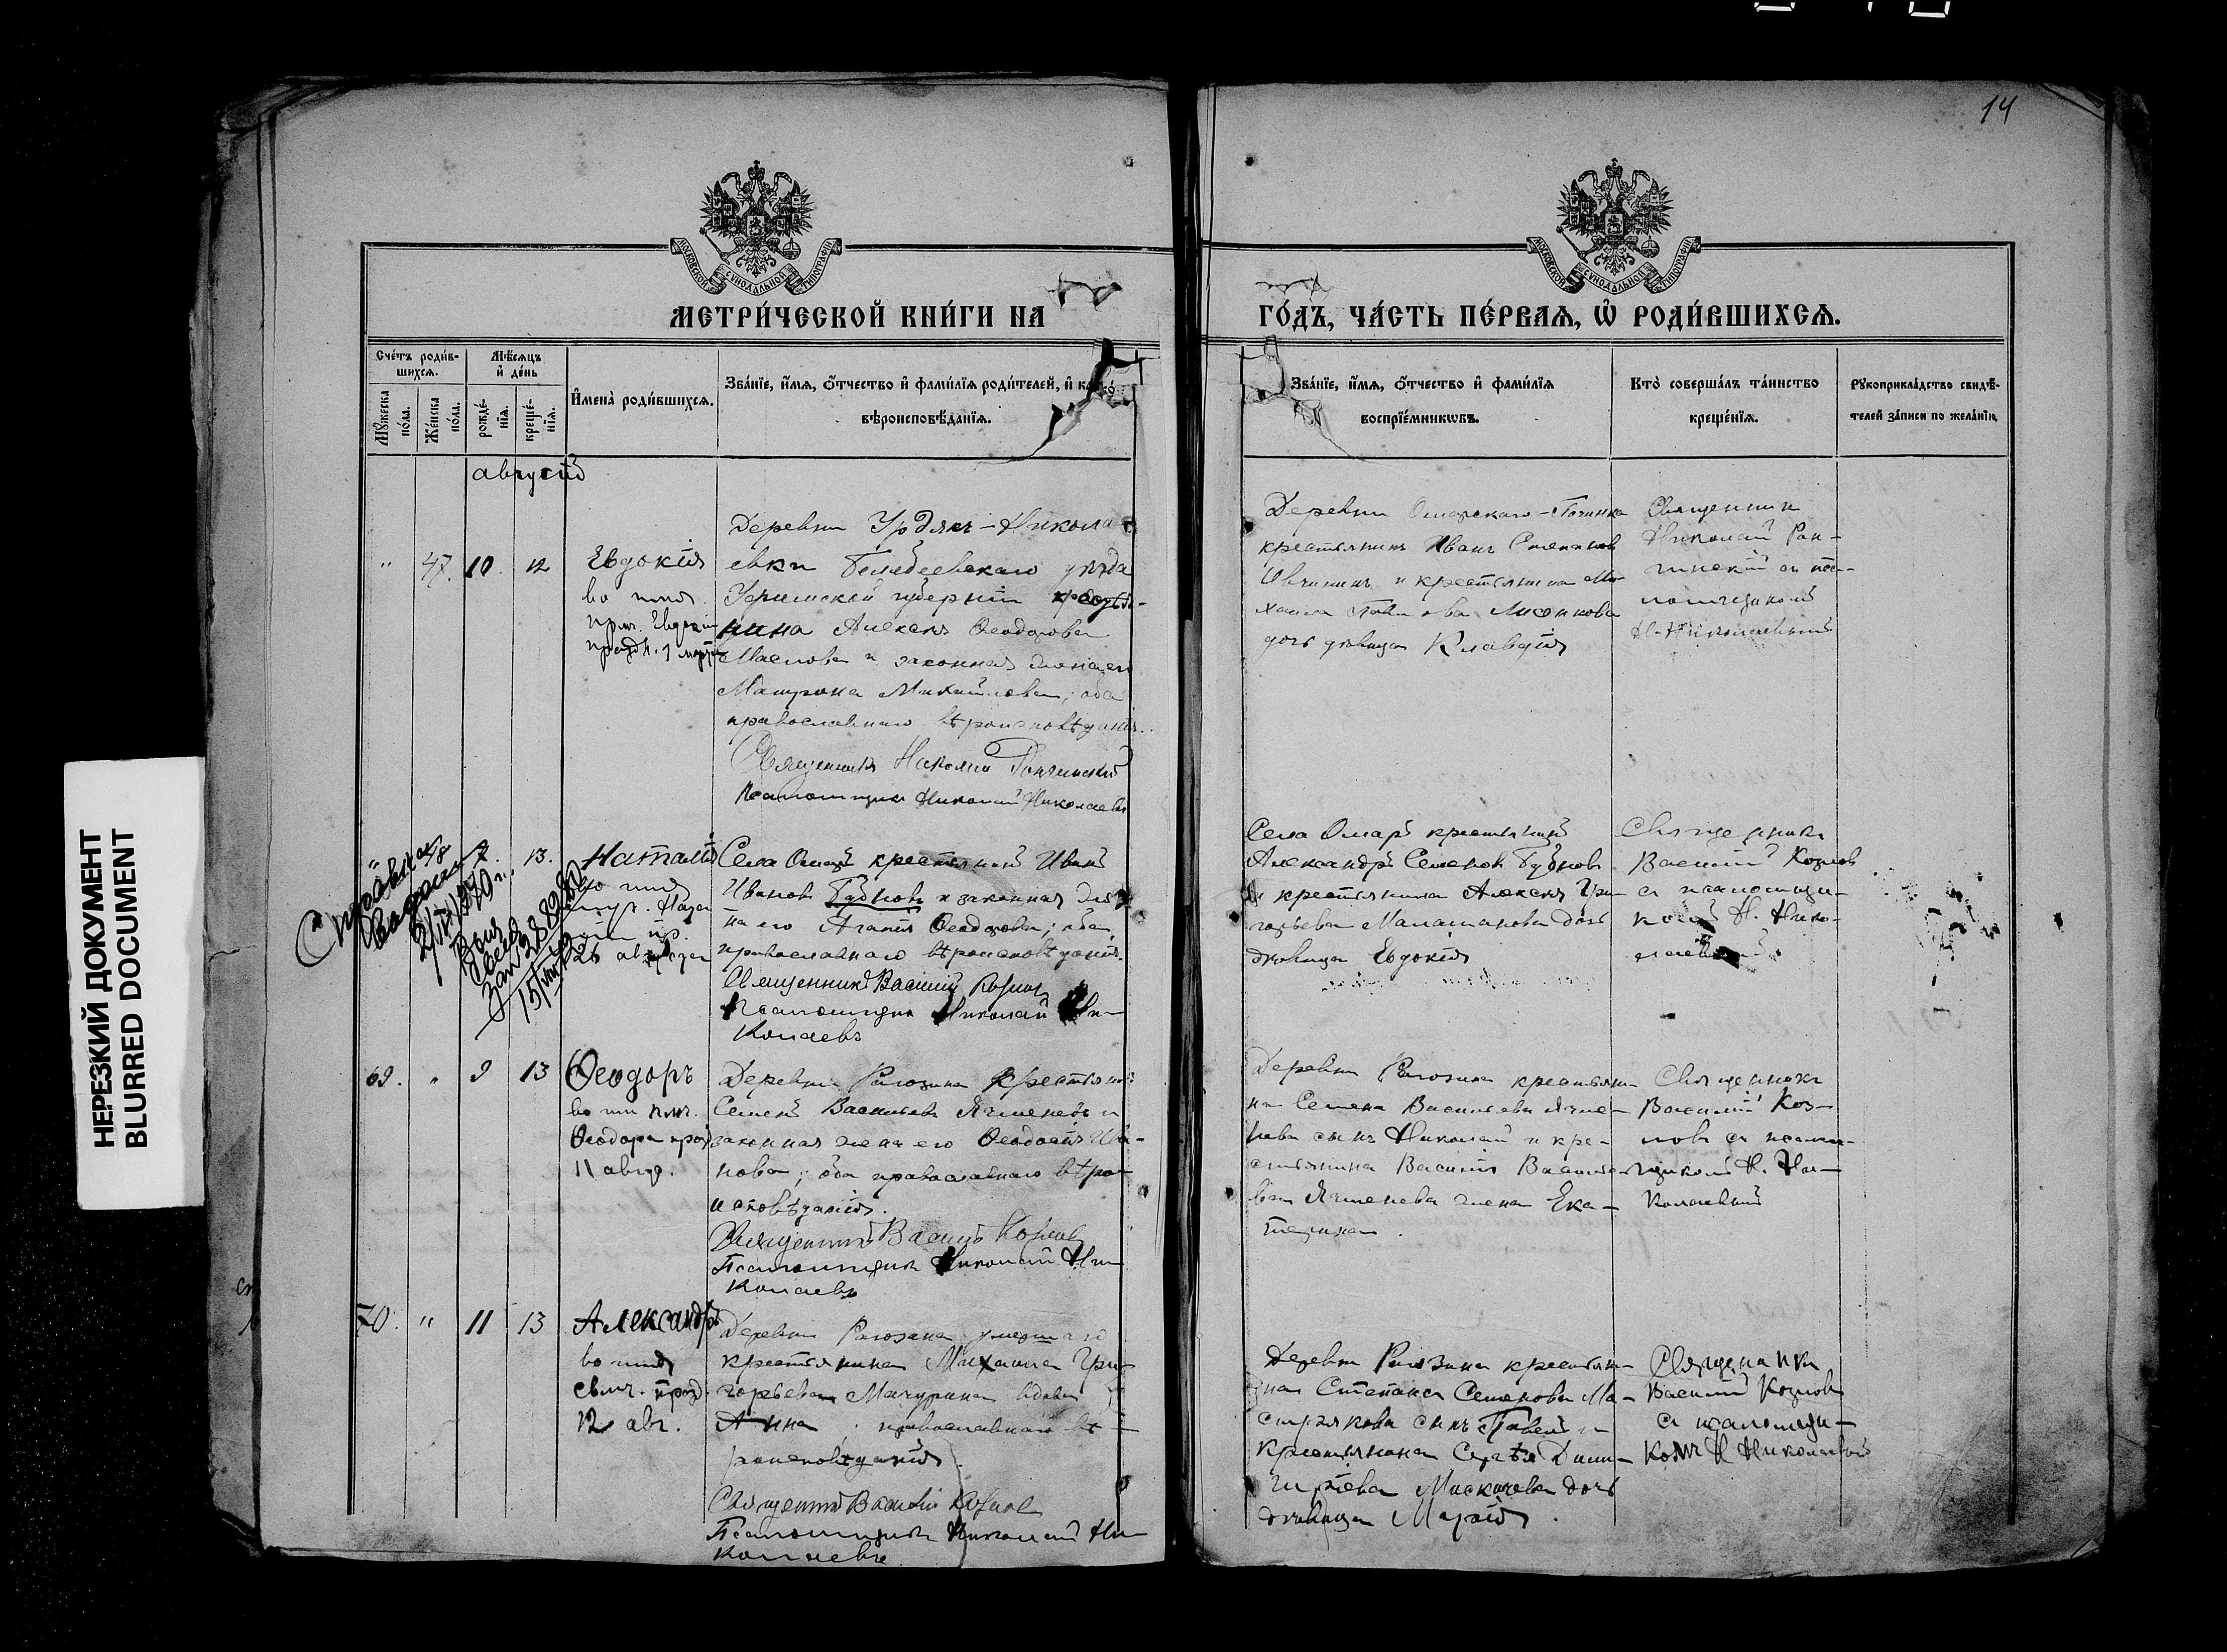 14
МОСКОВСКОЙ СУНОДАЛЬНОЙ ТИПОГРАФІИ
МОСКОВСКОЙ СУНОДАЛЬНОЙ ТИПОГРАФІИ
МЕТРИ́ЧЕСКОЙ КНИ́ГИ НА
ГО́ДЪ, ЧА́СТЬ ПЕ́РВАЯ, Ѡ҆ РОДИ́ВШИХСѦ.
Сче́тъ роди́в-
шихсѧ.
Мꙋ́жеска по́ла.
Же́нска по́ла.
Мѣ́сѧцъ
и҆ де́нь
рожде́-
нїѧ.
креще́-
нїѧ.
И҆мена̀ роди́вшихсѧ.
Зва́нїе, и҆́мѧ, ѻ҆́тчество и҆ фами́лїѧ роди́телей, и҆
вѣроисповѣ́данїѧ.
Зва́нїе, и҆́мѧ, ѻ҆́тчество и҆ фами́лїѧ
воспрїе́мникѡвъ.
Кто̀ соверша́лъ та́инство
креще́нїѧ.
Рꙋкоприкла́дство свидѣ́-
телей за́писи по жела́нїю.
августъ
" 47. 10 12
Евдокія
во имя
прм. Евдокіи
празд. 1 марта
Деревни Урдякъ-Никола
евки Белебеевскаго уѣзда
Уфимской губерніи крестья-
нина Алексѣя Ѳеодорова
Маслова и законная жена его
Матрона Михайлова; оба
православнаго вѣроисповѣданія.
Священникъ Николай
Псаломщикъ Николай Николаевъ
Деревни Омарскаго-Починка
крестьянинъ Иванъ Степановъ
Овчинниковъ и крестьянина Ми-
хаила
дочь дѣвица Клавдія
Священникъ
Николай
псаломщикомъ
Н. Николаевымъ
Справка
" 7. 13.
Наталія
во имя
26 августа
Села Омаръ крестьянинъ Иванъ
Ивановъ Бубновъ и законная же-
на его Агапія Ѳеодорова; оба
православнаго вѣроисповѣданія.
Священникъ Василій Козловъ
Псаломщикъ Николай Ни-
колаевъ
Села Омаръ крестьянинъ
Александръ Семеновъ Бубновъ
и крестьянина Алексѣя Гри-
горьева дочь
дѣвица Евдокія
Священникъ
Василій Козловъ
съ псаломщи-
комъ Н. Нико-
лаевымъ
69. " 9 13
Ѳеодоръ
во имя мч.
Ѳеодора празд.
11 авгус.
Деревни Рагозина крестьянинъ
Семенъ Васильевъ Ячменевъ и
законная жена его Ѳеодосія Ива-
нова; оба православнаго вѣро-
исповѣданія.
Священникъ Василій Козловъ
Псаломщикъ Николай Ни-
колаевъ
Деревни Рагозина крестьяни-
на Семена Васильева Ячме-
нева сынъ Николай и кре-
стьянина Василія Василье-
ва Ячменева жена Ека-
терина.
Священникъ
Василій Коз-
ловъ съ псалом-
щикомъ Н. Ни-
колаевымъ
70. " 11 13
Александръ
во имя
свмч. празд.
12 авг.
Деревни Рагозина умершаго
крестьянина Михаила Гри-
горьева Мачурина вдова
Анна православнаго вѣ-
роисповѣданія.
Священникъ Василій Козловъ
Псаломщикъ Николай Ни-
колаевъ
Деревни Рагозина крестьяни-
на Степана Семенова Ма-
стрюкова сынъ Павелъ и
крестьянина Сергѣя Дими-
тріева дочь
дѣвица Марія.
Священникъ
Василій Козловъ
съ псаломщи-
комъ Н Николаевымъ
НЕРЕЗКИЙ ДОКУМЕНТ
BLURRED DOCUMENT